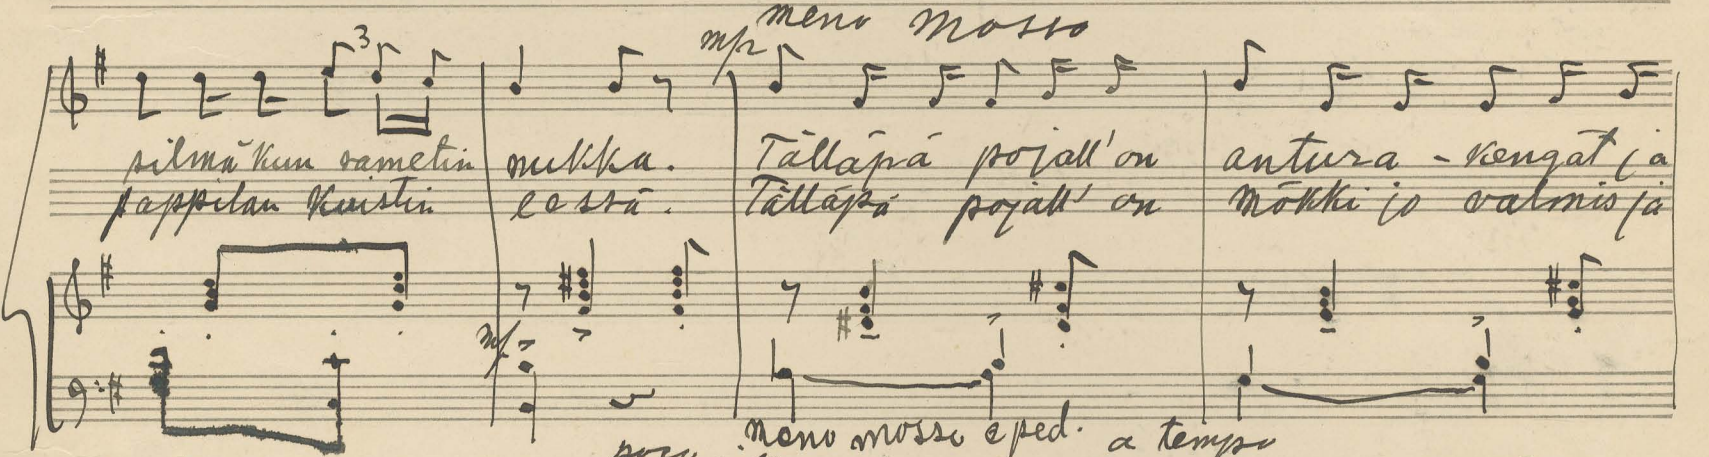 meno mosso
3
mp
silmä kun sametin nukka. Tälläpä pojall' on antura-kengät ja
pappilan kuistin eessä. Tälläpä pojall' on mökki jo valmis ja
mf
meno mosso e ped. a tempo